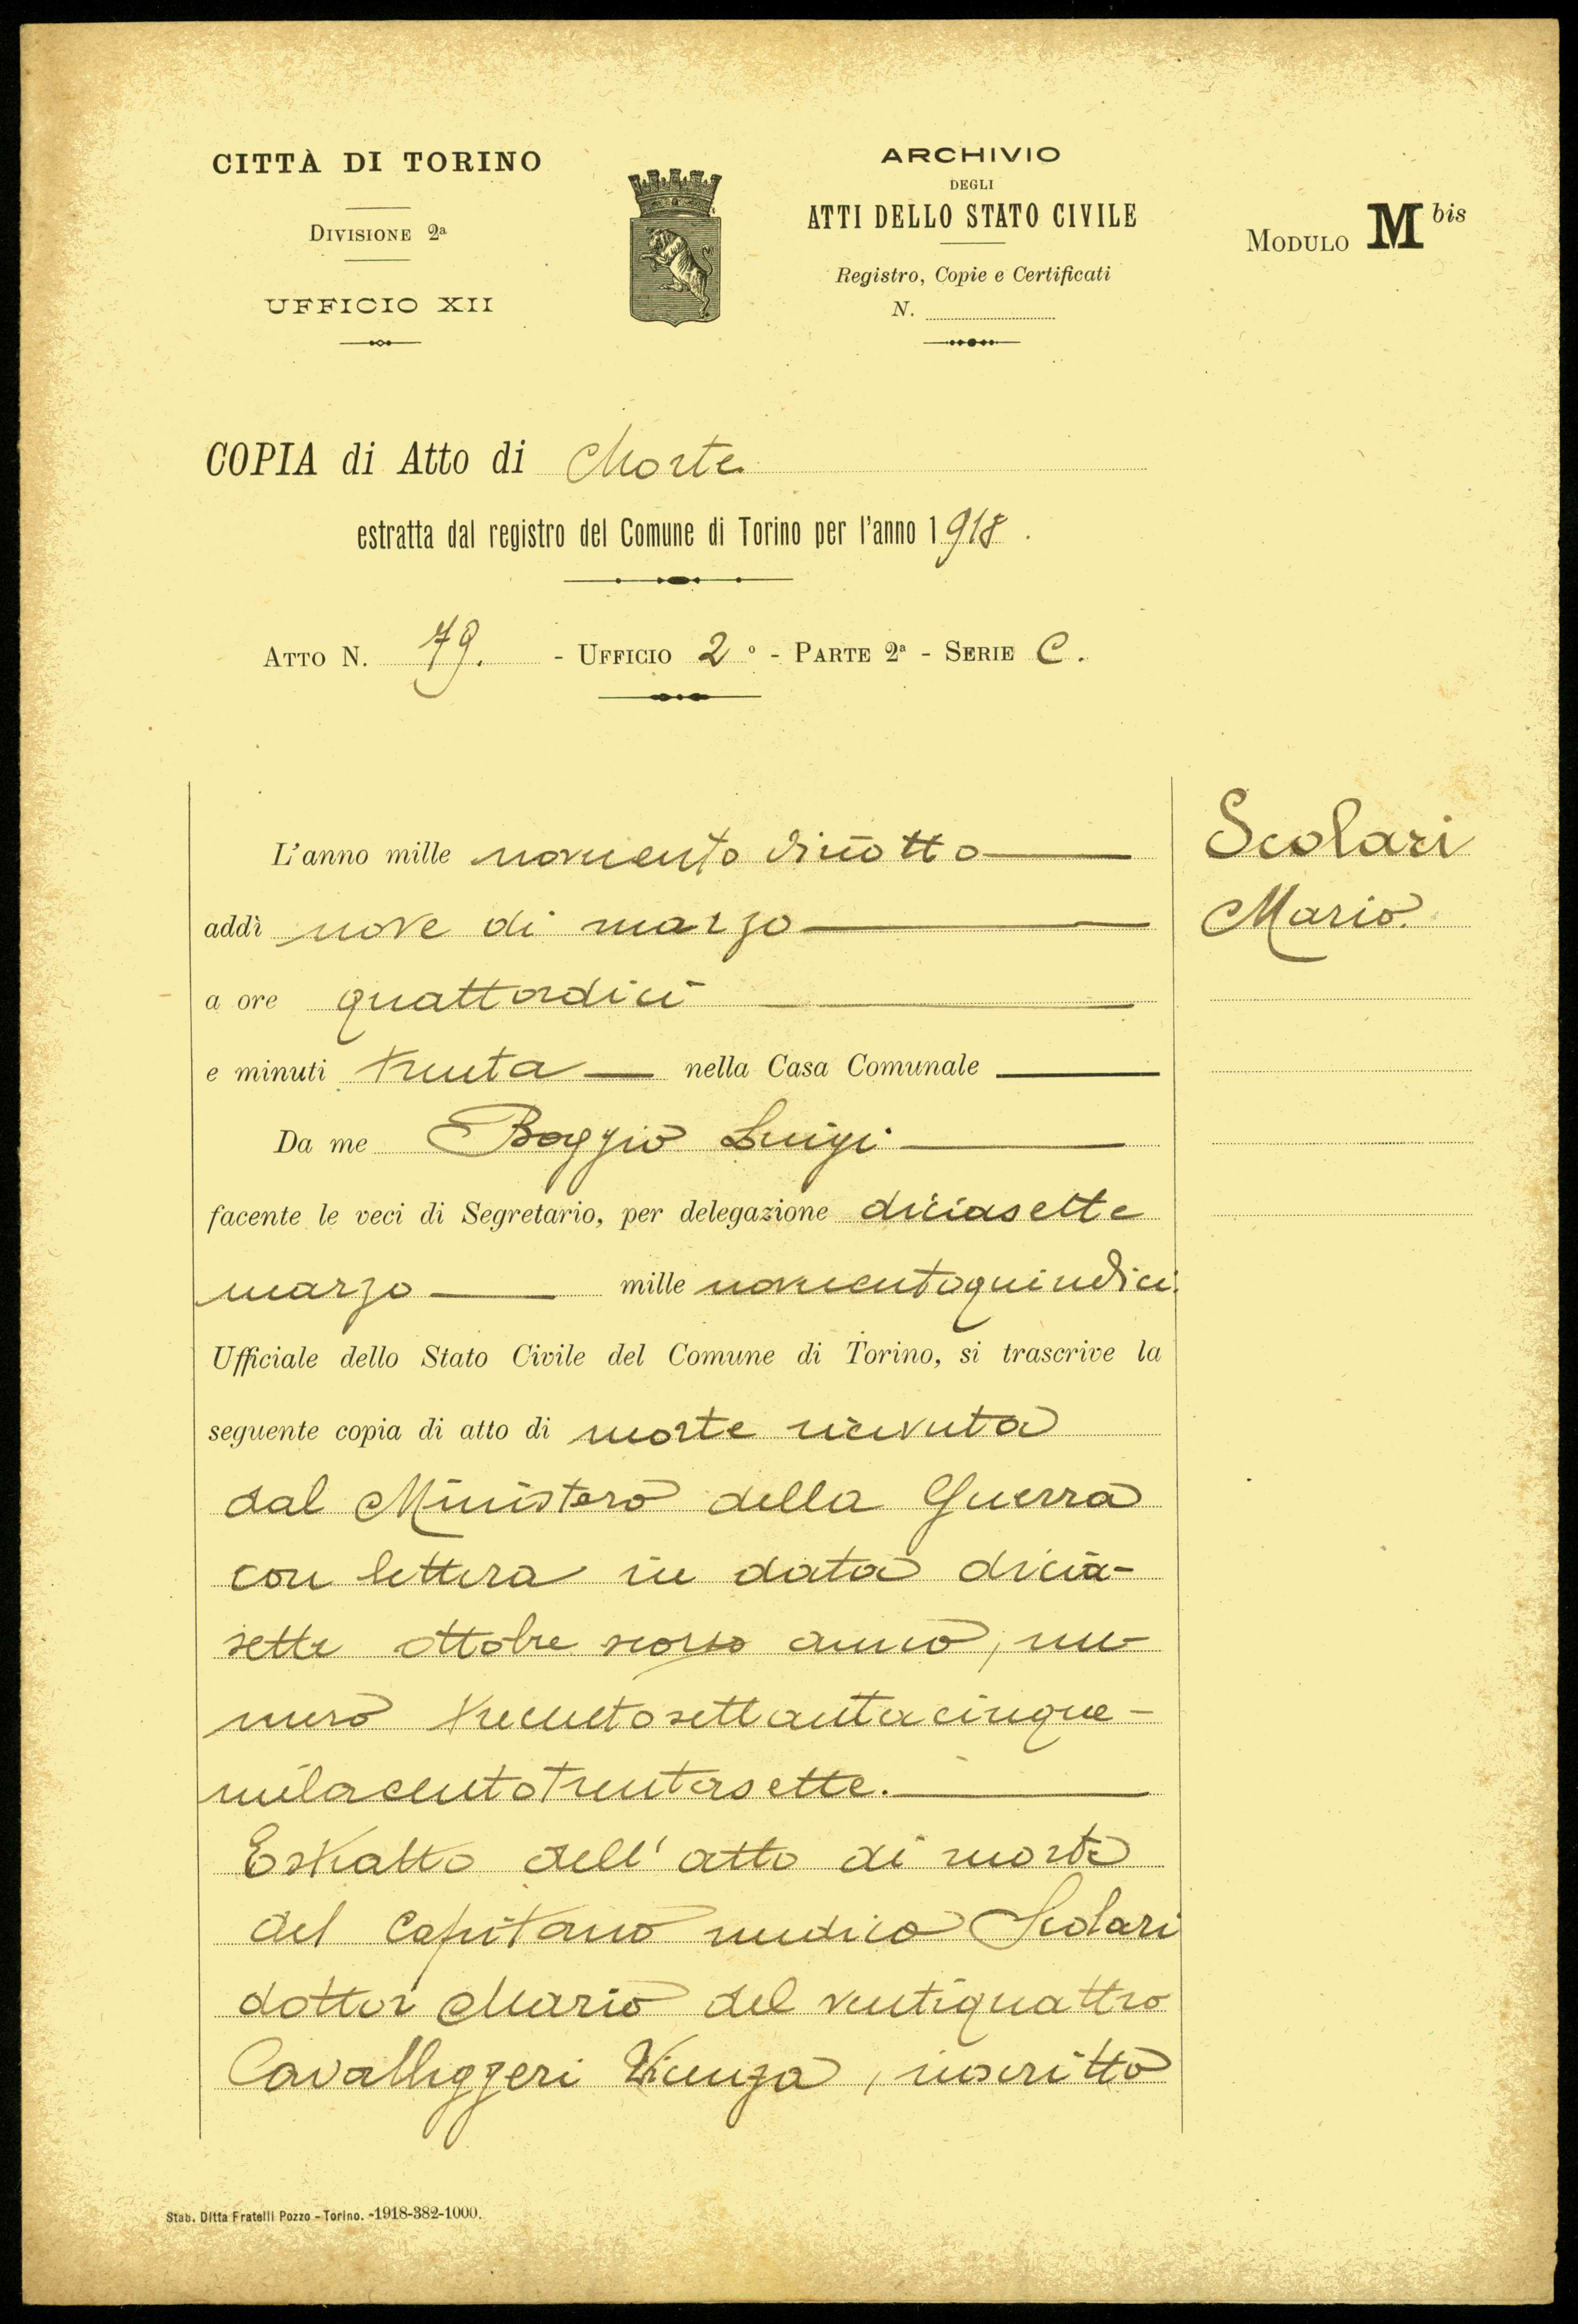 CITTÀ DI TORINO
DIVISIONE 2ª
UFFICIO XII
ARCHIVIO
DEGLI
ATTI DELLO STATO CIVILE
Registro, Copie e Certificati
N.
MODULO M bis
COPIA di Atto di Morte
estratta dal registro del Comune di Torino per l'anno 1918.
ATTO N. 79. - UFFICIO 2° - PARTE 2ª - SERIE C.
Scolari
Mario
L'anno mille novecento diciotto
addì nove di marzo
a ore quattordici
e minuti trenta nella Casa Comunale
Da me Boggio Luigi
facente le veci di Segretario, per delegazione diciasette
marzo mille novecentoquindici
Ufficiale dello Stato Civile del Comune di Torino, si trascrive la
seguente copia di atto di morte ricevuta
dal Ministero della Guerra
con lettera in data dicia-
sette ottobre scorso anno, nu-
mero trecentosettantacinque-
milacentotrentasette.
Estratto dell'atto di morte
del Capitano medico Scolari
dottor Mario del ventiquattro
Cavalleggeri Vicenza, inscritto
Stab. Ditta Fratelli Pozzo - Torino. -1918-382-1000.